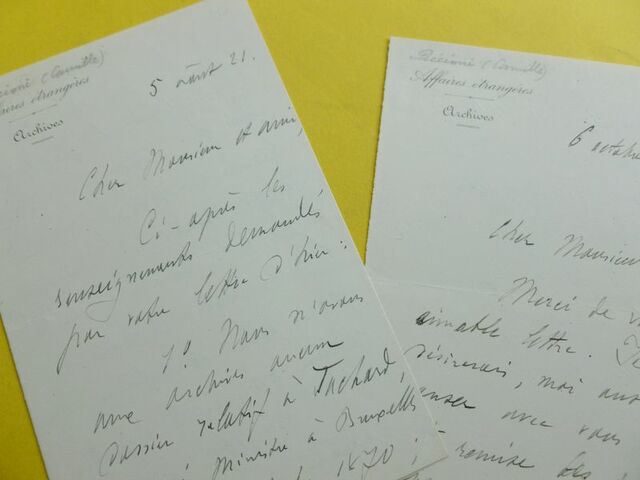 (Camille)
Affaires étrangères
Archives
5 août 21.
Cher Monsieur et ami,
Ci-après les
renseignements demandés
par votre lettre d'hier :
1° Nous n'avons
aux archives aucun
dossier relatif à Tachard,
Ministre à Bruxelles
1870 ;
(Camille)
Affaires étrangères
Archives
6 octobre
Cher Monsieur
Merci de v
aimable lettre. Je
désirerais, moi aus
avec vous
remise des